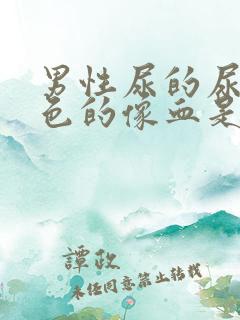 男性尿的尿
色的像血是
譚政
未任同意禁止转载